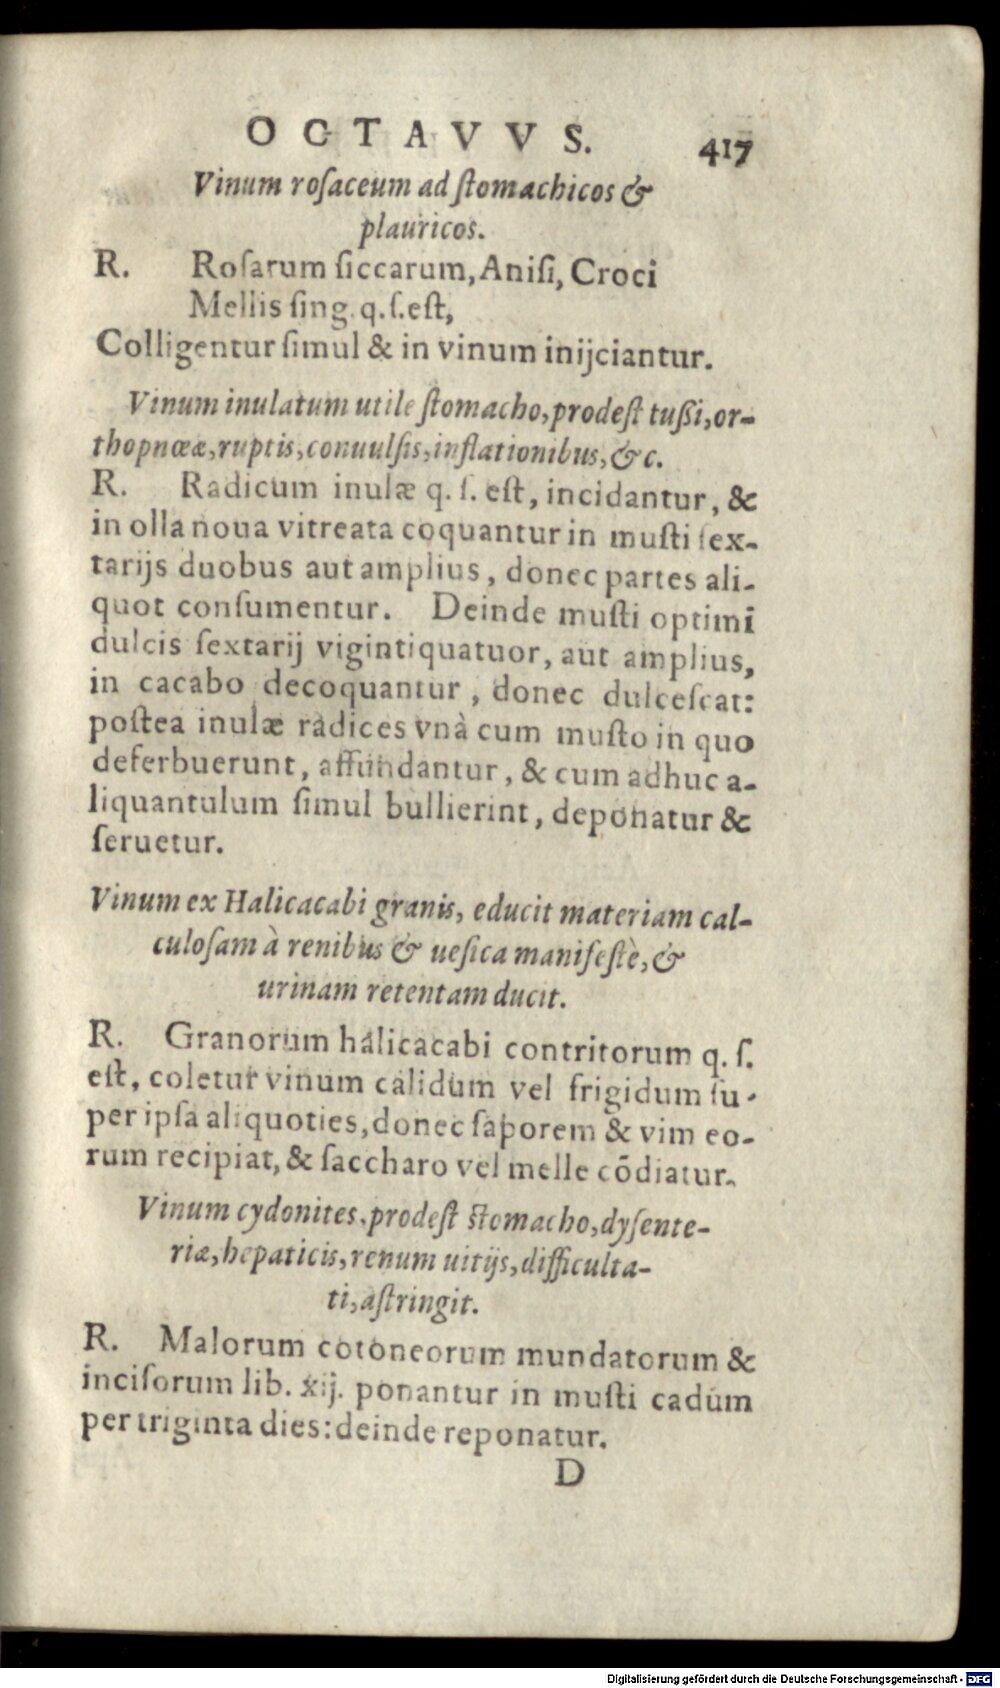 OCTAVVS. 417
Vinum roſaceum ad ſtomachicos &
plauricos.
R. Roſarum ſiccarum, Aniſi, Croci
Mellis ſing. q. ſ. eſt,
Colligentur ſimul & in vinum inijciantur.
Vinum inulatum utile ſtomacho, prodeſt tußi, or-
thopnœæ, ruptis, conuulſis, inflationibus, &c.
R. Radicum inulæ q. ſ. eſt, incidantur, &
in olla noua vitreata coquantur in muſti ſex-
tarijs duobus aut amplius, donec partes ali-
quot conſumentur. Deinde muſti optimi
dulcis ſextarij vigintiquatuor, aut amplius,
in cacabo decoquantur, donec dulceſcat:
poſtea inulæ radices vnà cum muſto in quo
deferbuerunt, affundantur, & cum adhuc a-
liquantulum ſimul bullierint, deponatur &
ſeruetur.
Vinum ex Halicacabi granis, educit materiam cal-
culoſam à renibus & ueſica manifeſtè, &
urinam retentam ducit.
R. Granorum halicacabi contritorum q. ſ.
eſt, coletur vinum calidum vel frigidum ſu-
per ipſa aliquoties, donec ſaporem & vim eo-
rum recipiat, & ſaccharo vel melle cōdiatur.
Vinum cydonites, prodeſt ſtomacho, dyſente-
riæ, hepaticis, renum uitijs, difficulta-
ti, aſtringit.
R. Malorum cotoneorum mundatorum &
inciſorum lib. xij. ponantur in muſti cadum
per triginta dies: deinde reponatur.
D
Digitalisierung gefördert durch die Deutsche Forschungsgemeinschaft - DFG